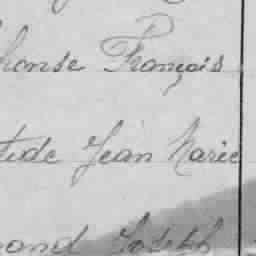 honse François
tide Jean Marie
mand Joseph